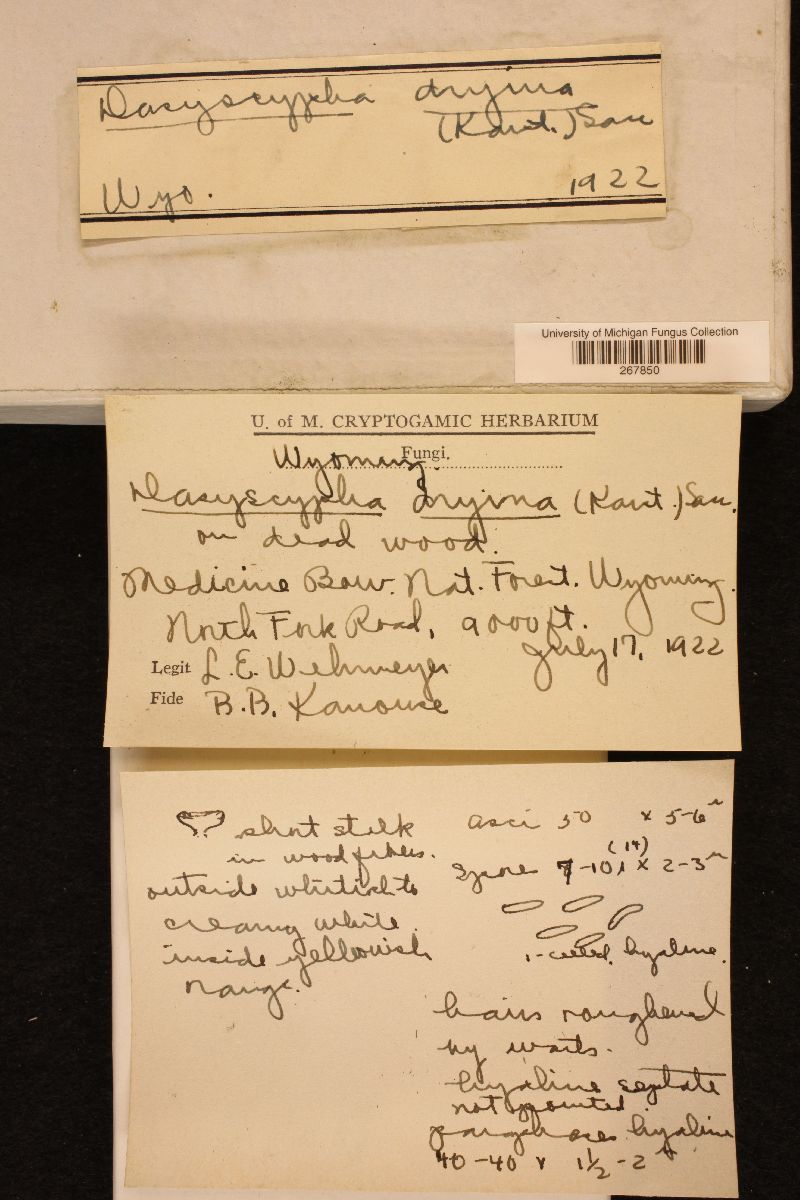 Dasyscypha dryina
(Karst.) Sacc
Wyo. 1922
University of Michigan Fungus Collection
267850
U. of M. CRYPTOGAMIC HERBARIUM
Fungi.
Wyoming.
Dasyscypha dryina (Karst.) Sacc.
on dead wood.
Medicine Bow. Nat. Forest. Wyoming.
North Fork Road, 9000 ft.
July 17, 1922
Legit L. E. Wehmeyer
Fide B. B. Kanouse
short stalk
in wood fibers.
outside whitish to
creamy white
inside yellowish
orange.
asci 50 x 5-6 µ
(14)
Spores 7-10 x 2-3 µ
1-celled, hyaline.
hairs roughened
by warts.
hyaline septate
not pointed.
paraphyses hyaline
40-40 x 1½-2 µ